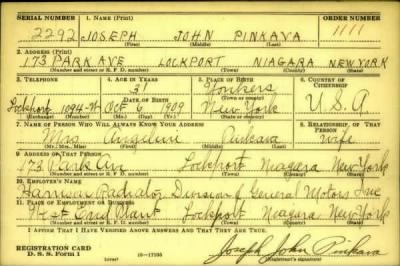 SERIAL NUMBER 1. NAME (Print) ORDER NUMBER
2292 JOSEPH JOHN PINKAVA 1111
(First) (Middle) (Last)
2. ADDRESS (Print)
173 PARK AVE LOCKPORT NIAGARA NEW YORK
(Number and street or R. F. D. number) (Town) (County) (State)
3. TELEPHONE 4. AGE IN YEARS 5. PLACE OF BIRTH 6. COUNTRY OF CITIZENSHIP
31 Yonkers
DATE OF BIRTH (Town or county)
Lockport 1094-W Oct 6 1909 New York U.S.A
(Exchange) (Number) (Mo.) (Day) (Yr.) (State or country)
7. NAME OF PERSON WHO WILL ALWAYS KNOW YOUR ADDRESS 8. RELATIONSHIP OF THAT PERSON
Mrs Pinkava Wife
(Mr., Mrs., Miss) (First) (Middle) (Last)
9. ADDRESS OF THAT PERSON
173 Park Ave Lockport Niagara New York
(Number and street or R. F. D. number) (Town) (County) (State)
10. EMPLOYER'S NAME
Harrison Radiator Division of General Motors Inc
11. PLACE OF EMPLOYMENT OR BUSINESS
West End Plant Lockport Niagara New York
(Number and street or R. F. D. number) (Town) (County) (State)
I AFFIRM THAT I HAVE VERIFIED ABOVE ANSWERS AND THAT THEY ARE TRUE.
REGISTRATION CARD
D. S. S. Form 1 (over) 16-17105
Joseph John Pinkava
(Registrant's signature)